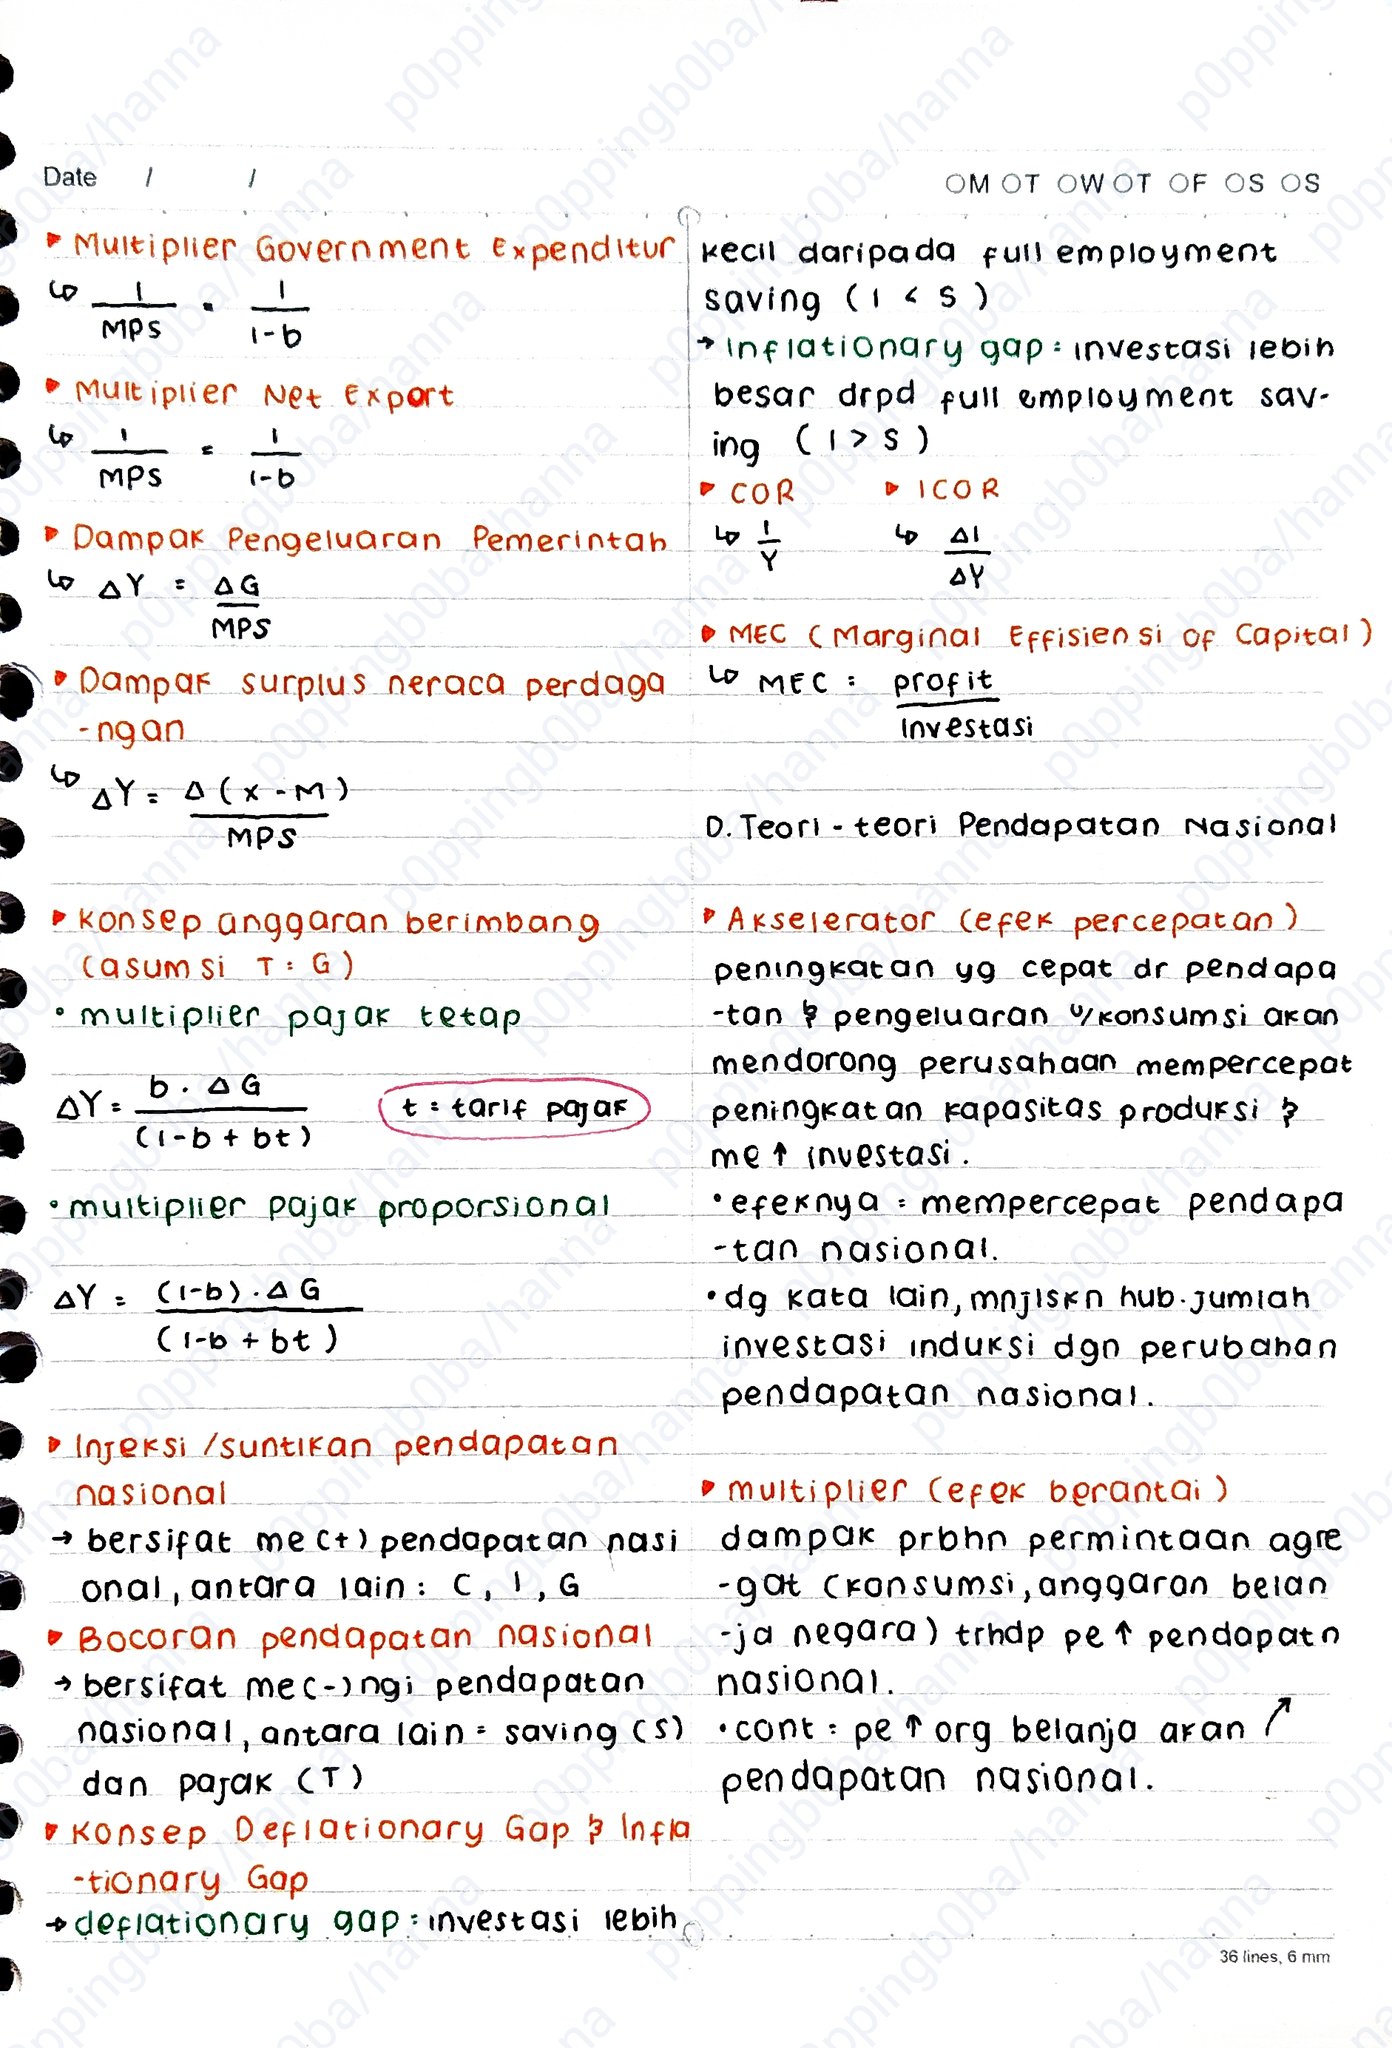 Date / /
OM OT OW OT OF OS OS
▸ Multiplier Government Expenditur
↳ 1/MPS = 1/1-b
▸ Multiplier Net Export
↳ 1/MPS = 1/1-b
▸ Dampak Pengeluaran Pemerintah
↳ ΔY = ΔG/MPS
▸ Dampak surplus neraca perdaga
-ngan
↳ ΔY = Δ(x-M)/MPS
▸ Konsep anggaran berimbang
(asumsi T = G)
• multiplier pajak tetap
ΔY = b . ΔG/(1-b + bt)
t = tarif pajak
• multiplier pajak proporsional
ΔY = (1-b) . ΔG/(1-b + bt)
▸ Injeksi /suntikan pendapatan
nasional
→ bersifat me(+) pendapatan nasi
onal, antara lain : C, I, G
▸ Bocoran pendapatan nasional
→ bersifat me(-)ngi pendapatan
nasional, antara lain = saving (S)
dan pajak (T)
▸ Konsep Deflationary Gap & Infla
-tionary Gap
→ deflationary gap : investasi lebih
kecil daripada full employment
saving (I < S)
→ Inflationary gap : investasi lebih
besar drpd full employment sav-
ing (I > S)
▸ COR ▸ ICOR
↳ I/Y ↳ ΔI/ΔY
▸ MEC (Marginal Effisiensi of Capital)
↳ MEC = profit/Investasi
D. Teori - teori Pendapatan Nasional
▸ Akselerator (efek percepatan)
peningkatan yg cepat dr pendapa
-tan & pengeluaran u/konsumsi akan
mendorong perusahaan mempercepat
peningkatan kapasitas produksi &
me↑ investasi.
• efeknya = mempercepat pendapa
-tan nasional.
• dg kata lain, mnjlskn hub. jumlah
investasi induksi dgn perubahan
pendapatan nasional.
▸ multiplier (efek berantai)
dampak prbhn permintaan agre
-gat (konsumsi, anggaran belan
-ja negara) trhdp pe↑ pendapatn
nasional.
• cont : pe↑ org belanja akan ↗
pendapatan nasional.
36 lines, 6 mm
p0ppingb0ba/hanna